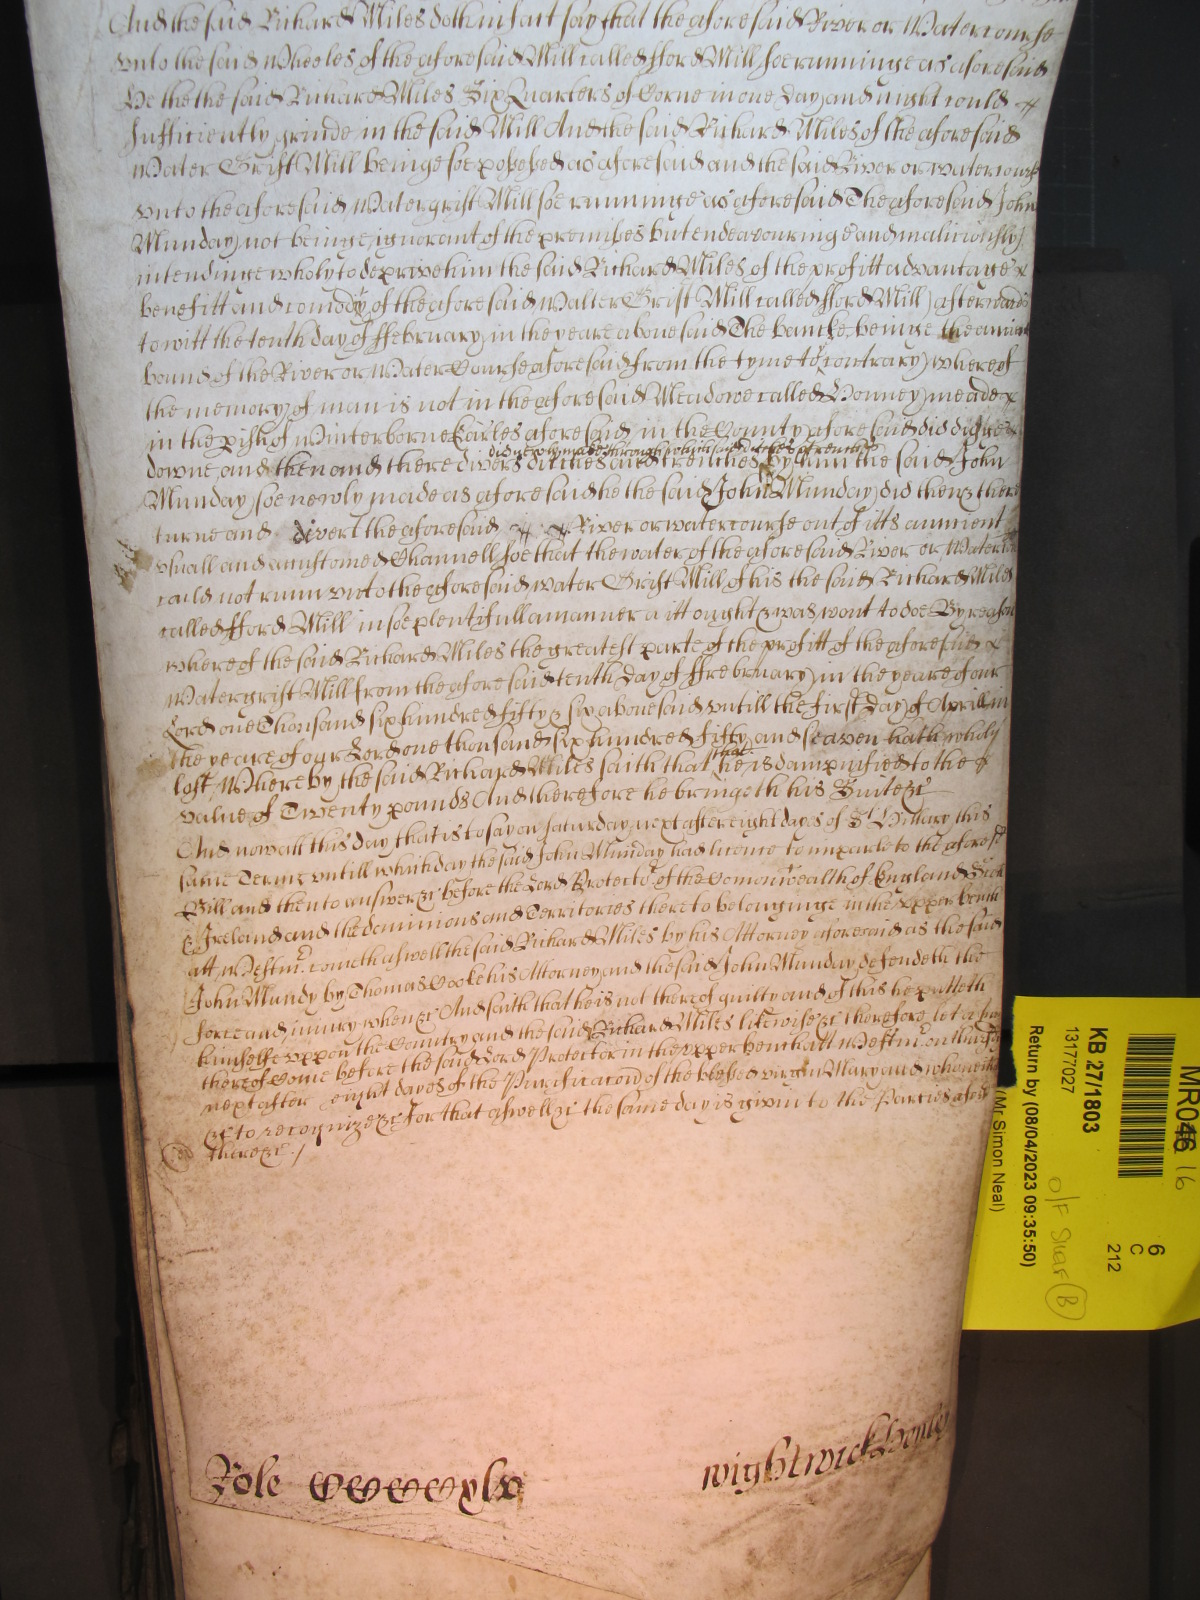 And the said Richard Miles doth in fact say that the aforesaid River or Watercourse
vnto the said Wheeles of the aforesaid Mill called fford Mill soe runninge as aforesaid
He the the said Richard Miles Six Quarters of Corne in one day and night could
sufficiently grinde in the said Mill And the said Richard Miles of the aforesaid
Water Grist Mill beinge soe possessed as aforesaid and the said River or watercourse
vnto the aforesaid Watergrist Mill soe runninge as aforesaid The aforesaid John
Munday not beinge ignorant of the premisses but endeavouringe and maliciously
intendinge wholy to deprive him the said Richard Miles of the profitt advantage
benefitt and comodity of the aforesaid Walter Grist Mill called fford Mill afterwards
to witt the tenth day of ffebruary in the yeare above said The bancke beinge the auncient
bound of the River or Water Course aforesaid from the tyme to contrary whereof
the memory of man is not in the aforesaid Meadowe called Honney meade
in the pish of Winterborne Earles aforesaid in the County aforesaid did digge
did newly make through which said ditches & trenches
downe and then and there divers ditches and trenches by him the said John
Munday soe newly made as aforesaid he the said John Munday did then & there
turne and divert the aforesaid River or watercourse out of itts auncient
vsuall and accustomed Channell soe that the water of the aforesaid River or Watercourse
could not runn vnto the aforesaid water Grist Mill of his the said Richard Miles
called fford Mill in soe plentifull a manner a itt ought & was wont to doe By reason
whereof the said Richard Miles the greatest parte of the profitt of the aforesaid
Watergrist Mill from the aforesaid tenth day of ffebruary in the yeare of our
Lord one Thousand six hundred fifty & six above said vntill the first day of Aprill in
the yeare of our Lord one thousand six hundred fifty and seaven hath wholy
lost Whereby the said Richard Miles saith that he is dampnified to the
value of Twenty pounds And therefore he bringeth his Suite &c
And now att this day that is to say on Saturday next after eight dayes of St Hillary this
same Terme vntill which day the said John Munday had licence to imparle to the aforesd
Bill and then to answer &c before the Lord Protector of the Comonwealth of England Scotl
& Ireland and the dominions and Territories thereto belonginge in the vpper bench
att Westmr. cometh aswell the said Richard Miles by his Attorney aforesaid as the said
John Mundy by Thomas Cooke his Attorney and the said John Munday defendeth the
force and iniury when &c And saith that he is not thereof guilty and of this he putteth
himselfe vppon the Country and the said Richard Miles likewise &c therefore let a Jury
thereof Come before the said Lord Protector in the vpper bench att Westmr. on
next after eight dayes of the Purificacion of the blessed virgin Mary and who neither
&c to recognize &c for that aswell &c the same day is given to the Parties aforesd
there &c./
Role
wightwick
MR046 16
KB 27/1803
13177027
Return by (08/04/2023 09:35:50)
(Mr Simon Neal)
6
C
212
B